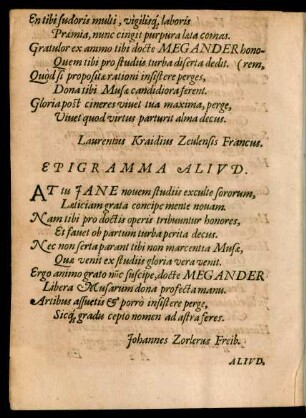 En tibi sudoris multi, vigiliæq́; laboris
Præmia, nunc cingit purpura læta comas.
Gratulor ex animo tibi docte MEGANDER hono-
Quem tibi pro studiis turba diserta dedit. (rem,
Quòd si propositæ rationi insistere perges,
Dona tibi Musæ candidiora ferent.
Gloria post cineres vivet tua maxima, perge,
Vivet quod virtus parturit alma decus.
Laurentius Kraidius Zeulensis Francus.
EPIGRAMMA ALIVD.
AT tu JANE novem studiis exculte sororum,
Lætitiam grata concipe mente novam.
Nam tibi pro doctis operis tribuuntur honores,
Et favet ob partum turba perita decus.
Nec non serta parant tibi non marcentia Musæ,
Qua venit ex studiis gloria vera venit.
Ergo animo grato nũc suscipe, docte MEGANDER
Libera Musarum dona profecta manu.
Artibus assuetis & porrò insistere perge,
Sicq́; gradu cepto nomen ad astra feres.
Johannes Zorlerus Freib.
ALIVD.